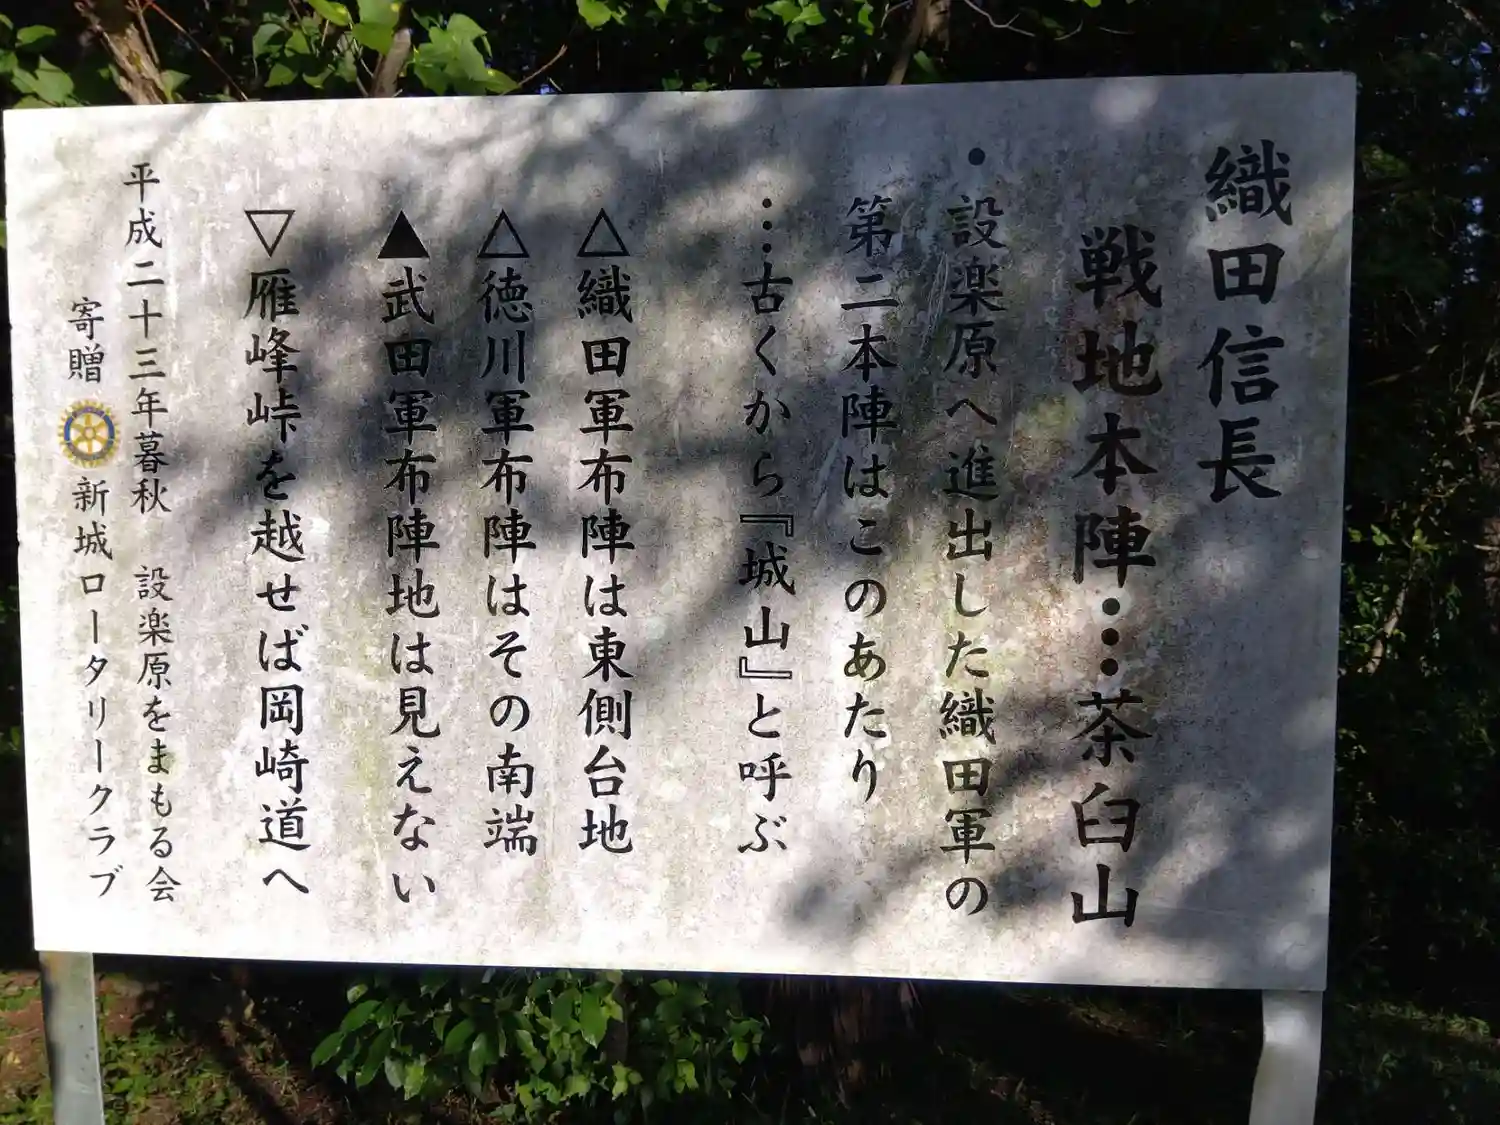 織田信長
戦地本陣……茶臼山
・設楽原へ進出した織田軍の
第二本陣はこのあたり
…古くから『城山』と呼ぶ
△織田軍布陣は東側台地
△徳川軍布陣はその南端
▲武田軍布陣地は見えない
▽雁峰峠を越せば岡崎道へ
平成二十三年暮秋 設楽原をまもる会
寄贈 新城ロータリークラブ